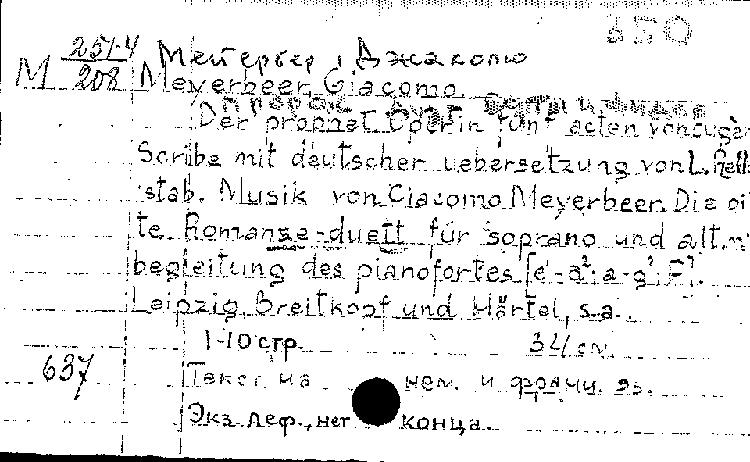 350
M 251-4/208 Мейербер, Джакомо
Meyerbeer, Giacomo.
Пророк. Дуэт Берты и Фидес
Der prophet. Oper in fünf acten von Eugèn
Scribe mit deutscher uebersetzung von L. Rell-
stab. Musik von Giacomo Meyerbeer. Die
te Romanze-duett für soprano und alt.
begleitung des pianofortes [e'-a²; a-g²; F].
Leipzig, Breitkopf und Härtel, s.a.
1-10 стр. 34 см.
637
Текст на нем. и франц. яз.
Экз. деф., нет конца.